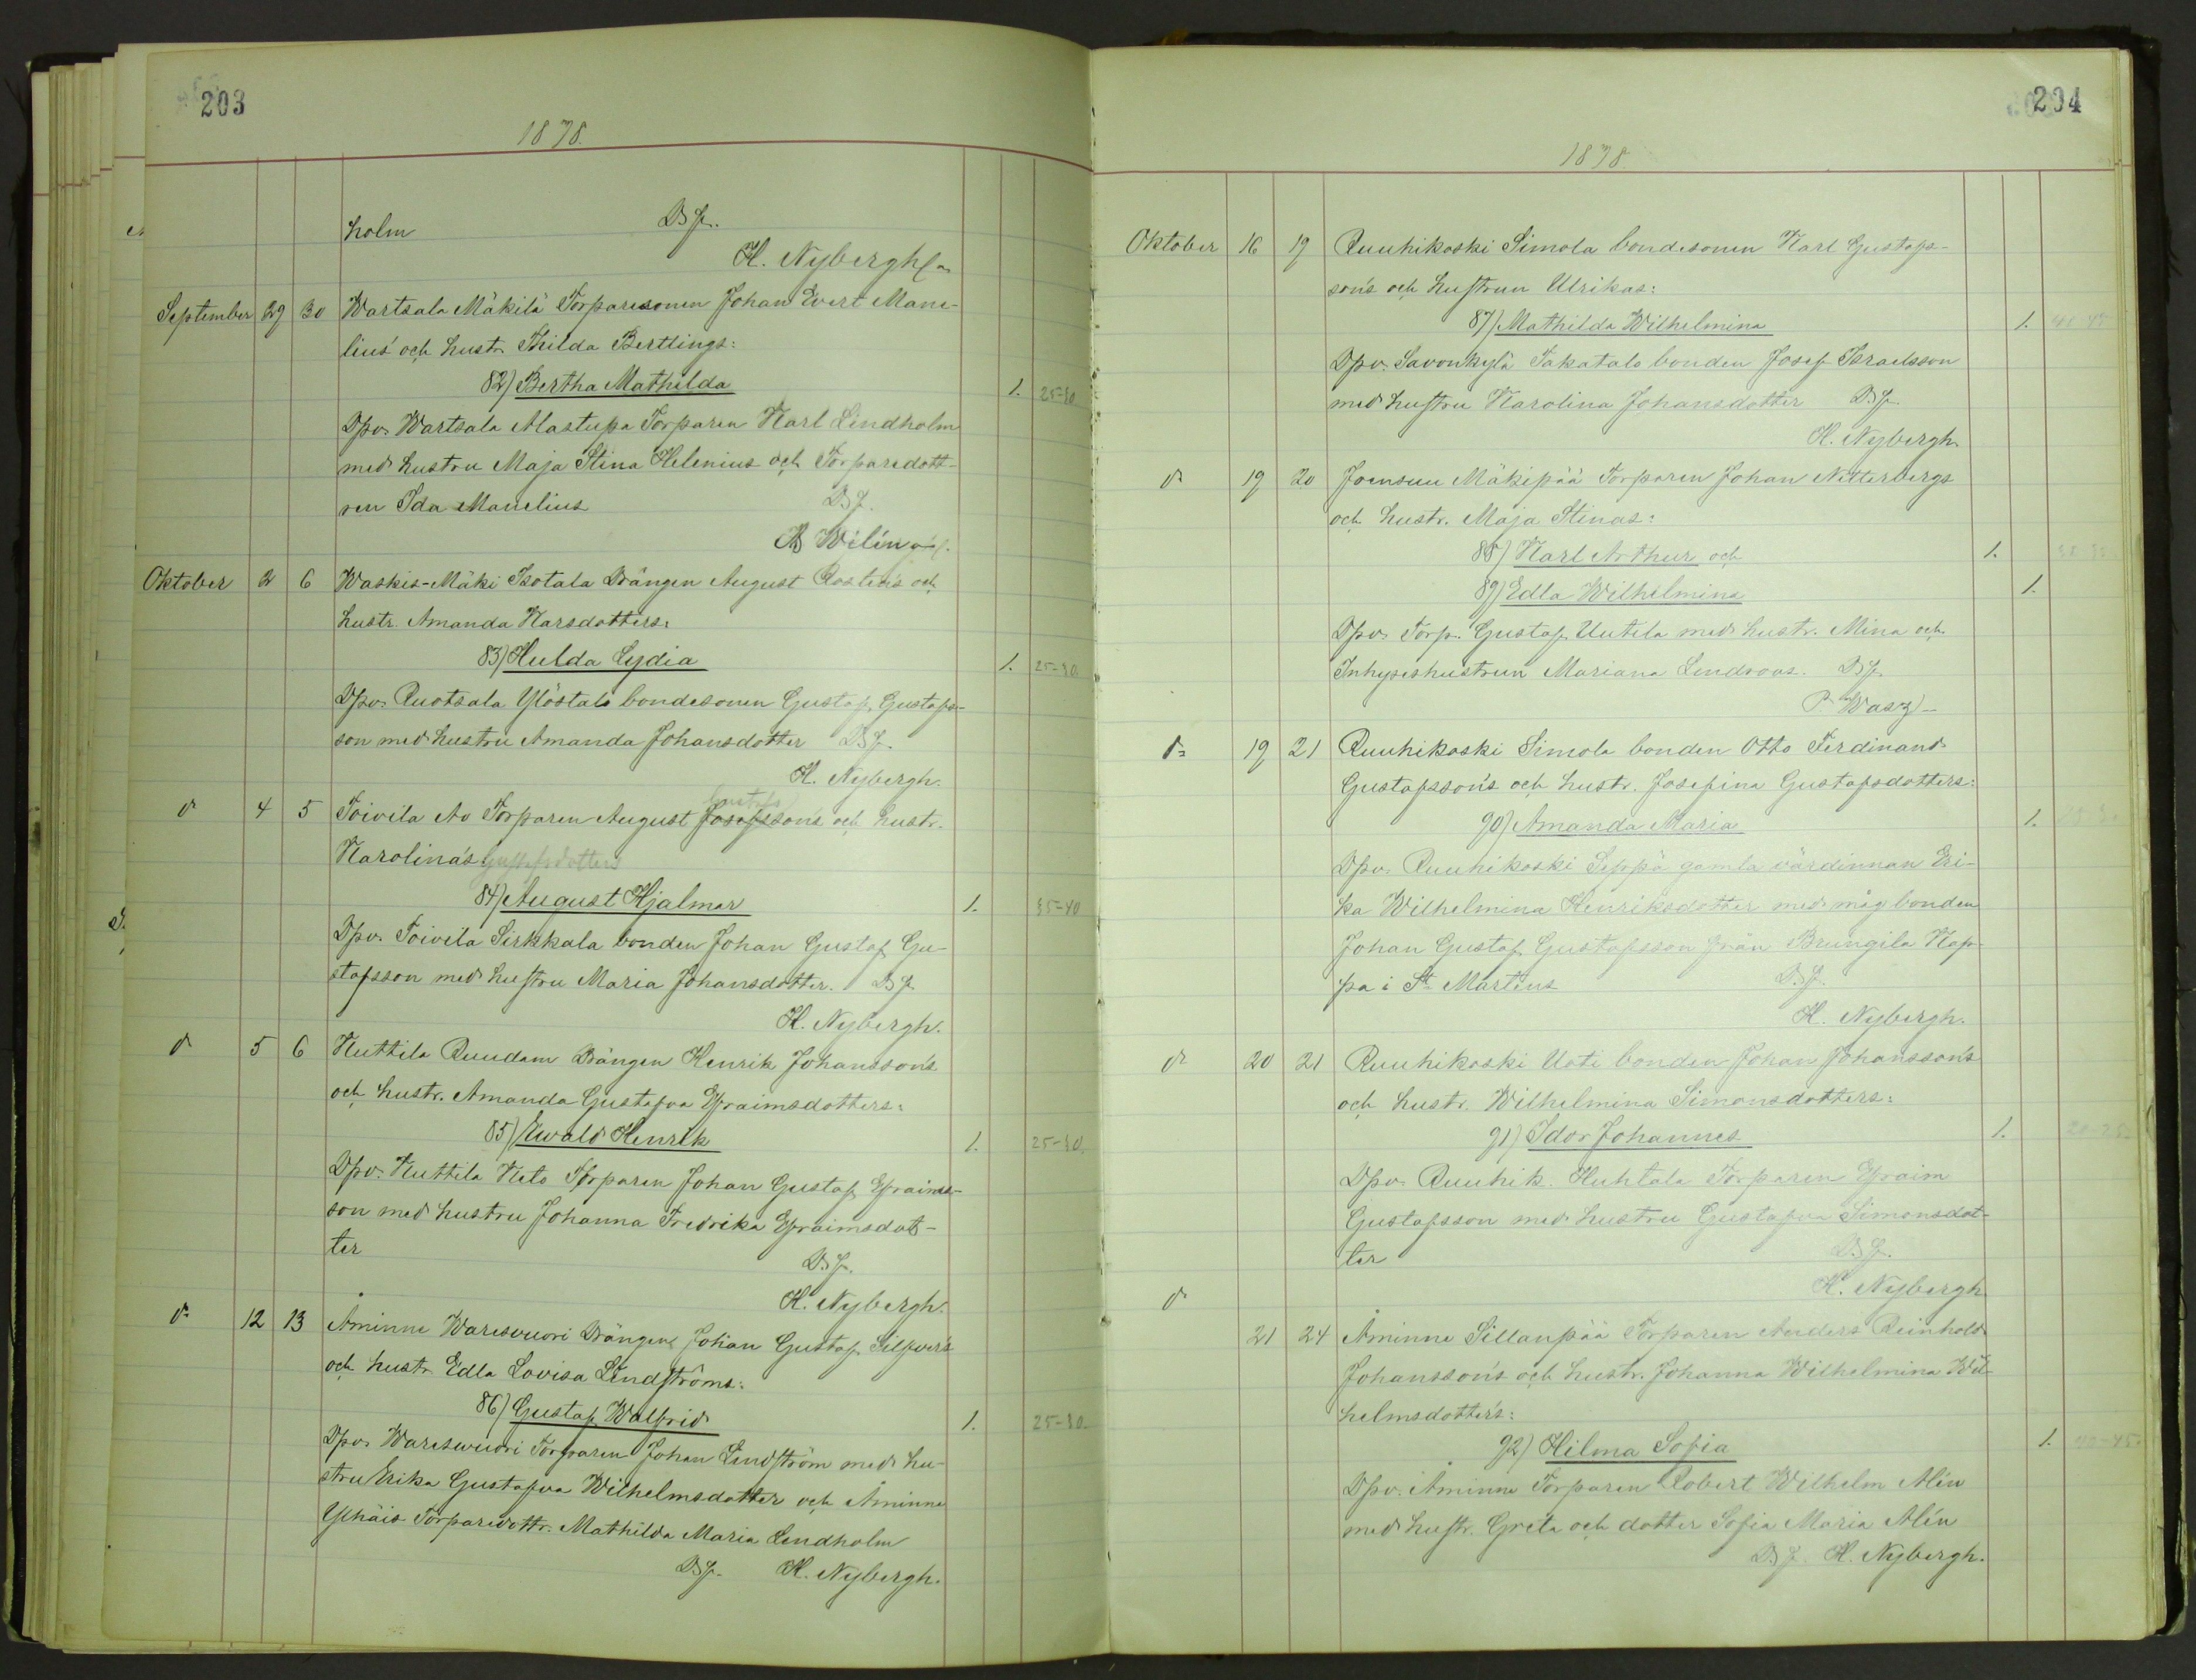 203
1878.
holm DJp.
H. Nybergh
September 29 30 Wartsala Mäkilä Torparesonen Johan Evert Mane-
lius' och hustr. Thilda Bertlings:
82) Bertha Mathilda 1. 25-30
Dpv. Wartsala Alastupa Torparen Karl Lindholm
med hustru Maja Stina Helenius och Torparedott-
ren Ida Manelius DJp.
Wilén
Oktober 2 6 Waskis-Mäki Isotala Drängen August Rostens och
hustr. Amanda Karsdotters:
83) Hulda Lydia 1. 25-30
Dpv. Ruotsala Ylöstalo bondesonen Gustaf Gustafs-
son med hustru Amanda Johansdotter DJp.
H. Nybergh.
Gustafs
d 4 5 Toivila Av Torparen August Josefssons och hustr.
Karolina's Gustafsdotters
84) August Hjalmar 1. 35-40
Dpv. Toivila Sirkkala bonden Johan Gustaf Gu-
stafsson med hustru Maria Johansdotter. DJp
H. Nybergh.
d 5 6 Huttila Ruudam Drängen Henrik Johansson's
och hustr. Amanda Gustafva Efraimsdotters:
85) Ewald Henrik 1. 25-30.
Dpv. Huttila Torparen Johan Gustaf Efraims-
son med hustru Johanna Fredrika Efraimsdot-
ter DJp.
H. Nybergh.
d: 12 13 Åminne Waresvuori Drängens Johan Gustaf Silfver's
och hustr Edla Lovisa Lindströms:
86) Gustaf Walfrid 1. 25-30.
Dpv. Wareswuori Torparen Johan Lindström med hu-
stru Erika Gustafva Wilhelmsdotter och Åminne
Torparedottr. Mathilda Maria Lindholm
DJp. H. Nybergh.
204
1878.
Oktober 16 19 Ruuhikoski Simola bondesonen Karl Gustafs-
sons och hustrun Ulrikas:
87) Mathilda Wilhelmina 1. 40-45
Dpv. Savonkylä Takatalo bonden Josef Israelsson
med hustru Karolina Johansdotter DJp.
H. Nybergh.
d 19 20 Joensuu Mäkipää Torparen Johan Netterbergs
och hustr. Maja Stinas:
88) Karl Arthur och 1.
89) Edla Wilhelmina 1.
Dpv. Torp. Gustaf Uutela med hustr. Mina och
Inhyseshustrun Mariana Lindroos. DJp.
P. Wasz-
d: 19 21 Ruuhikoski Simola bonden Otto Ferdinand
Gustafsson's och hustr. Josefina Gustafsdotters:
90) Amanda Maria 1.
Dpv. Ruuhikoski Seppä gamla värdinnan Eri-
ka Wilhelmina Henriksdotter med måg bonden
Johan Gustaf Gustafsson från Brungila Kap-
pa i St Martens DJp.
H. Nybergh.
d 20 21 Ruuhikoski Uoti bonden Johan Johansson's
och hustr. Wilhelmina Simonsdotters:
91) Idor Johannes 1.
Dpv. Ruuhik. Huhtala Torparen Efraim
Gustafsson med hustru Gustafva Simonsdot-
ter DJp.
H. Nybergh
d
21 24 Åminne Sillanpää Torparen Anders Reinhold
Johansson's och hustr. Johanna Wilhelmina Wil-
helmsdotters:
92) Hilma Sofia 1. 40-45.
Dpv. Åminne Torparen Robert Wilhelm Alén
med hustr. Greta och dotter Sofia Maria Alén
DJp. H. Nybergh.